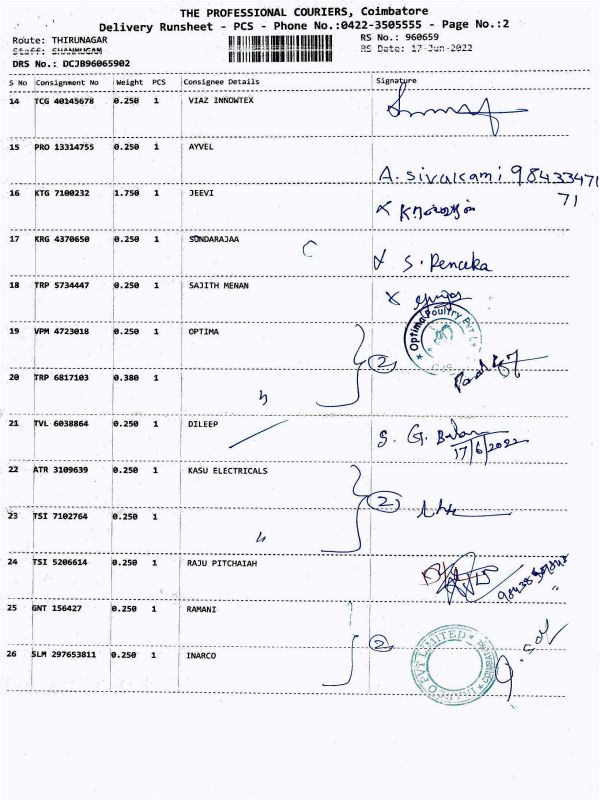 THE PROFESSIONAL COURIERS, Coimbatore
Delivery Runsheet - PCS - Phone No.:0422-3505555 - Page No.:2
Route: THIRUNAGAR RS No.: 960659
Staff: SHANMUGAM RS Date: 17-Jun-2022
DRS No.: DCJB96065902
S No Consignment No Weight PCS Consignee Details Signature
14 TCG 40145678 0.250 1 VIAZ INNOWTEX
15 PRO 13314755 0.250 1 AYVEL
A. sivakami 98433471
71
16 KTG 7100232 1.750 1 JEEVI
17 KRG 4370650 0.250 1 SUNDARAJAA C
x S. Renuka
18 TRP 5734447 0.250 1 SAJITH MENAN
19 VPM 4723018 0.250 1 OPTIMA
Optima Poultry Pvt
2
20 TRP 6817103 0.380 1 "
21 TVL 6038864 0.250 1 DILEEP
S. G.
17/6/2022
22 ATR 3109639 0.250 1 KASU ELECTRICALS
2
23 TSI 7102764 0.250 1 "
24 TSI 5206614 0.250 1 RAJU PITCHAIAH
25 GNT 156427 0.250 1 RAMANI
2
26 SLM 297653811 0.250 1 INARCO
PVT LIMITED